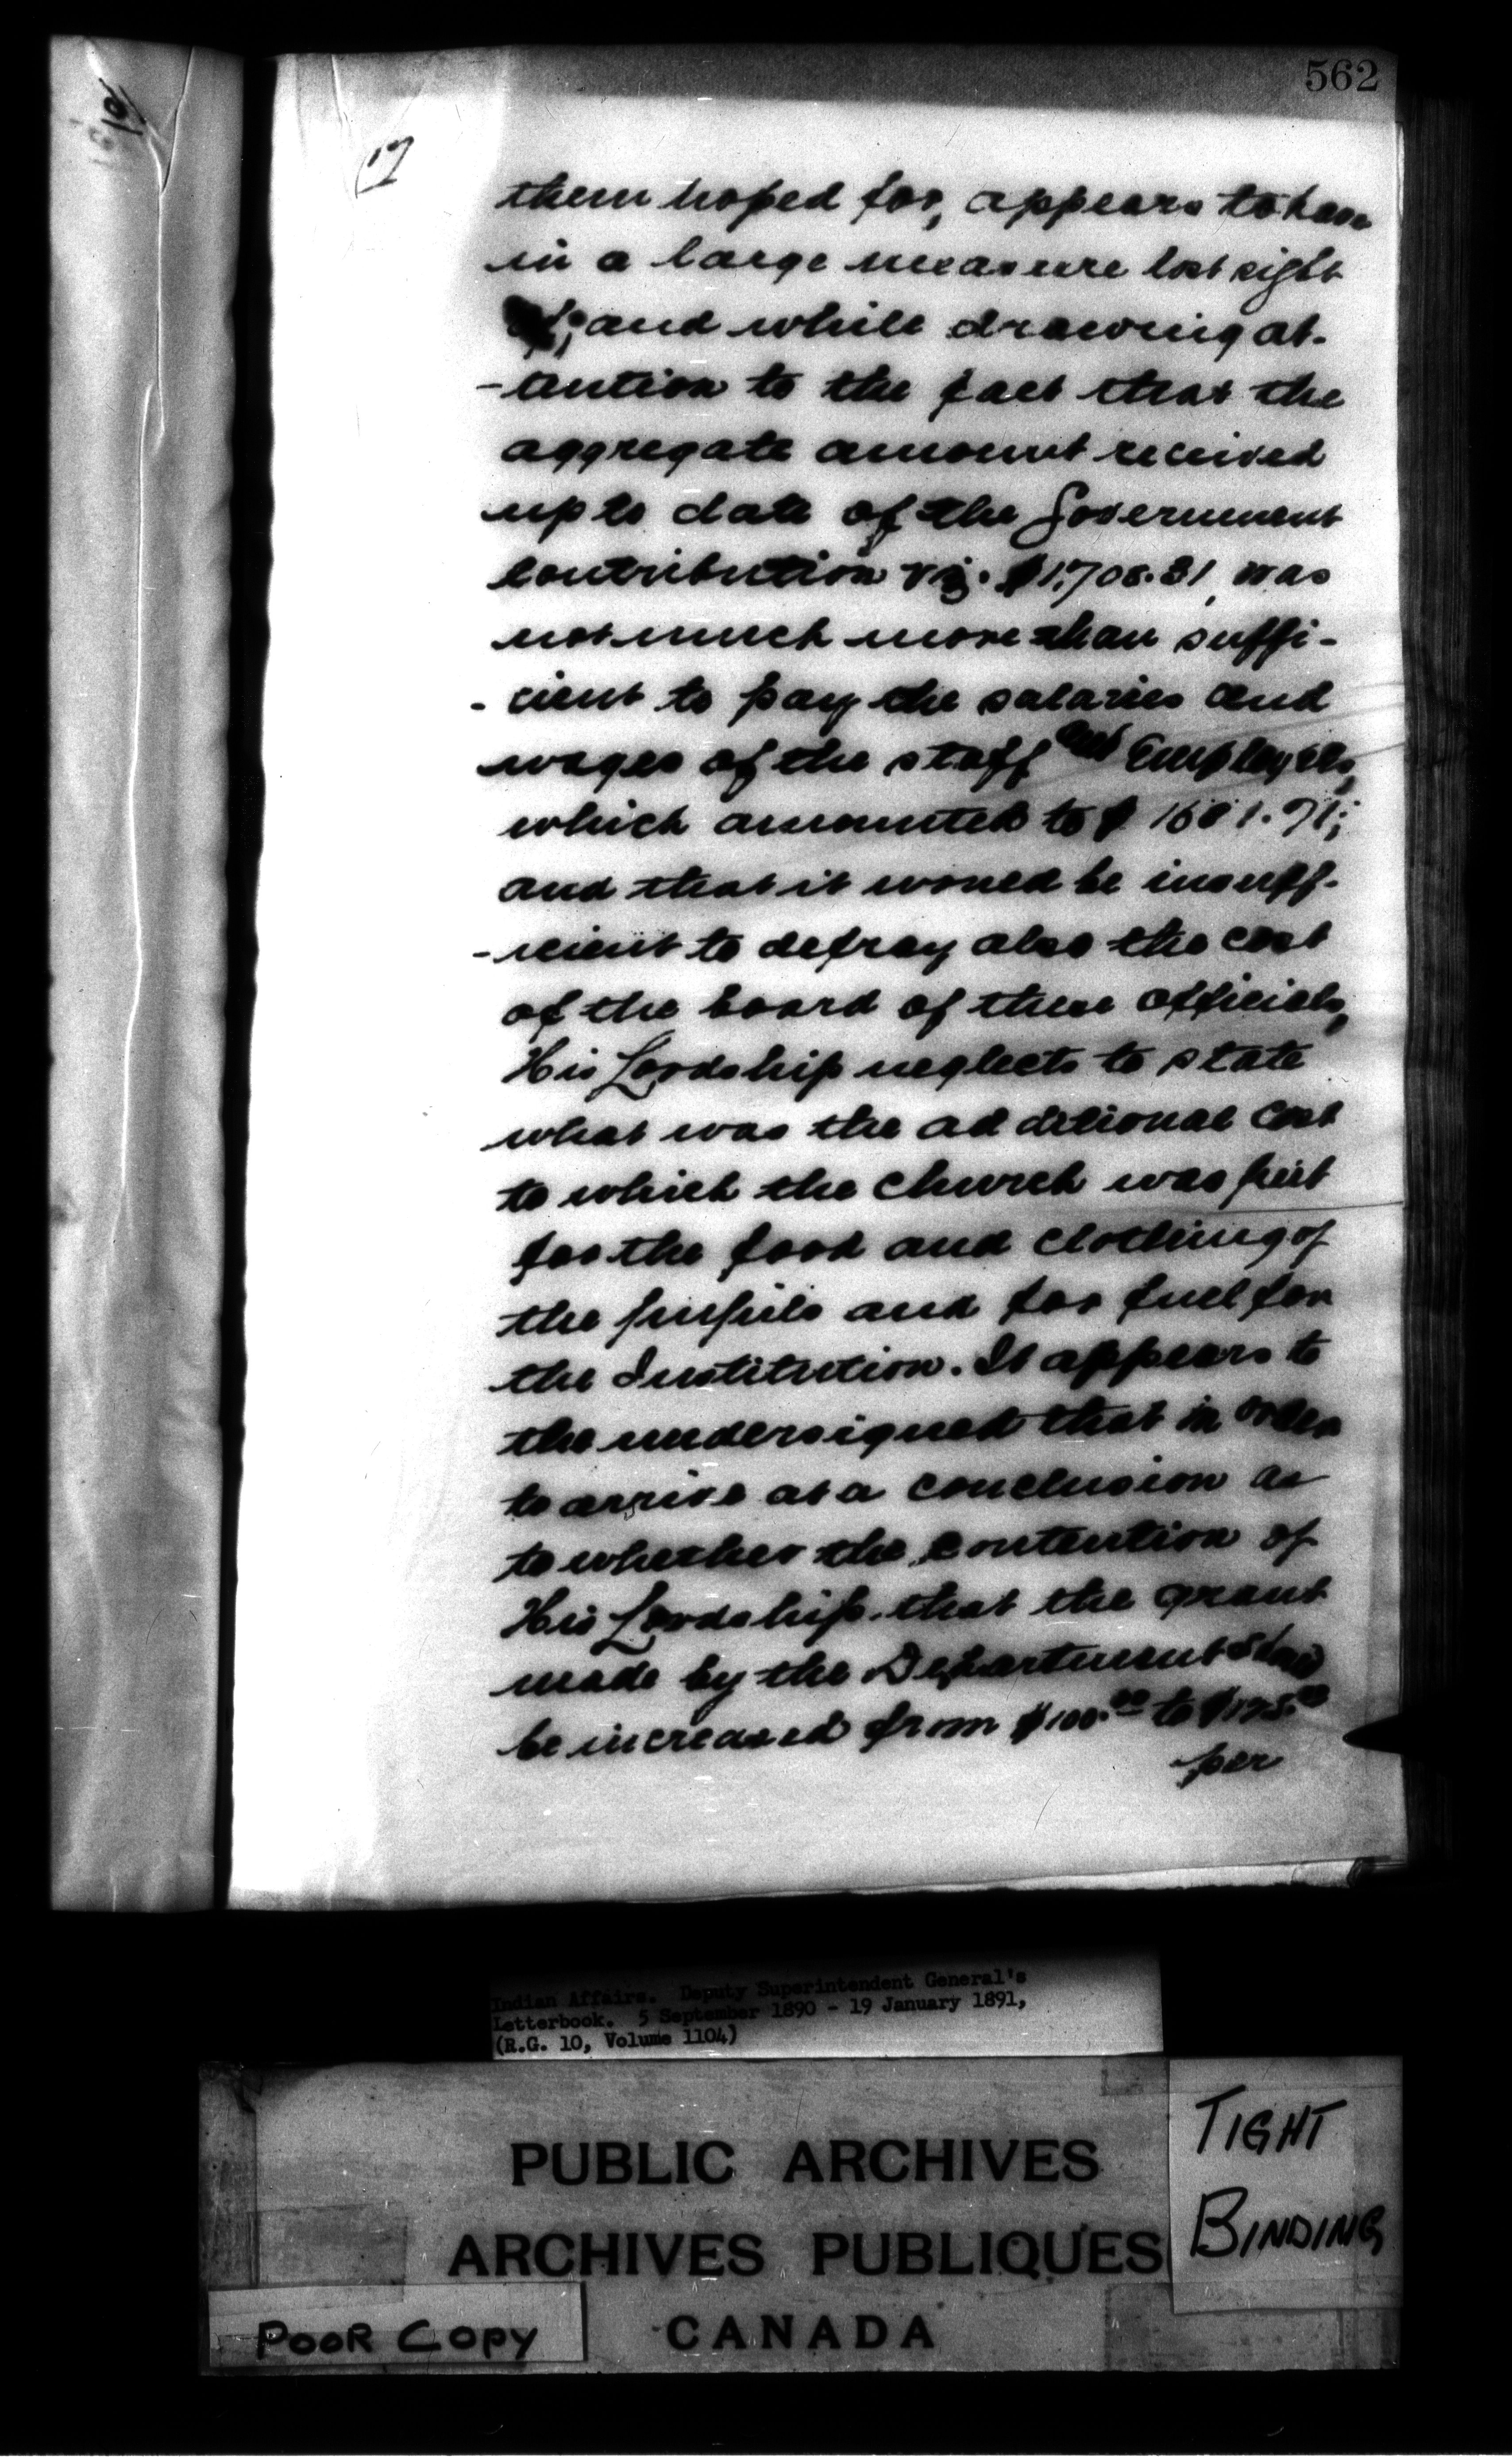 562
17
them hoped for, appears to have
in a large measure lost sight
of; and while drawing at-
-tention to the fact that the
aggregate amount received
up to date of the Government
contribution viz. $1,708.31, was
not much more than suffi-
-cient to pay the salaries and
wages of the staff and Employees,
which amounted to $1681.71;
and that it would be insuff-
-icient to defray also the cost
of the board of these officials,
His Lordship neglects to state
what was the additional cost
to which the Church was put
for the food and clothing of
the pupils and for fuel for
the Institution. It appears to
the undersigned that in order
to arrive at a conclusion as
to whether the contention of
His Lordship that the grant
made by the Department should
be increased from $100.00 to $175.00
per
Indian Affairs. Deputy Superintendent General's
Letterbook. 5 September 1890 - 19 January 1891,
(R.G. 10, Volume 1104)
PUBLIC ARCHIVES
ARCHIVES PUBLIQUES
CANADA
TIGHT
BINDING
POOR COPY